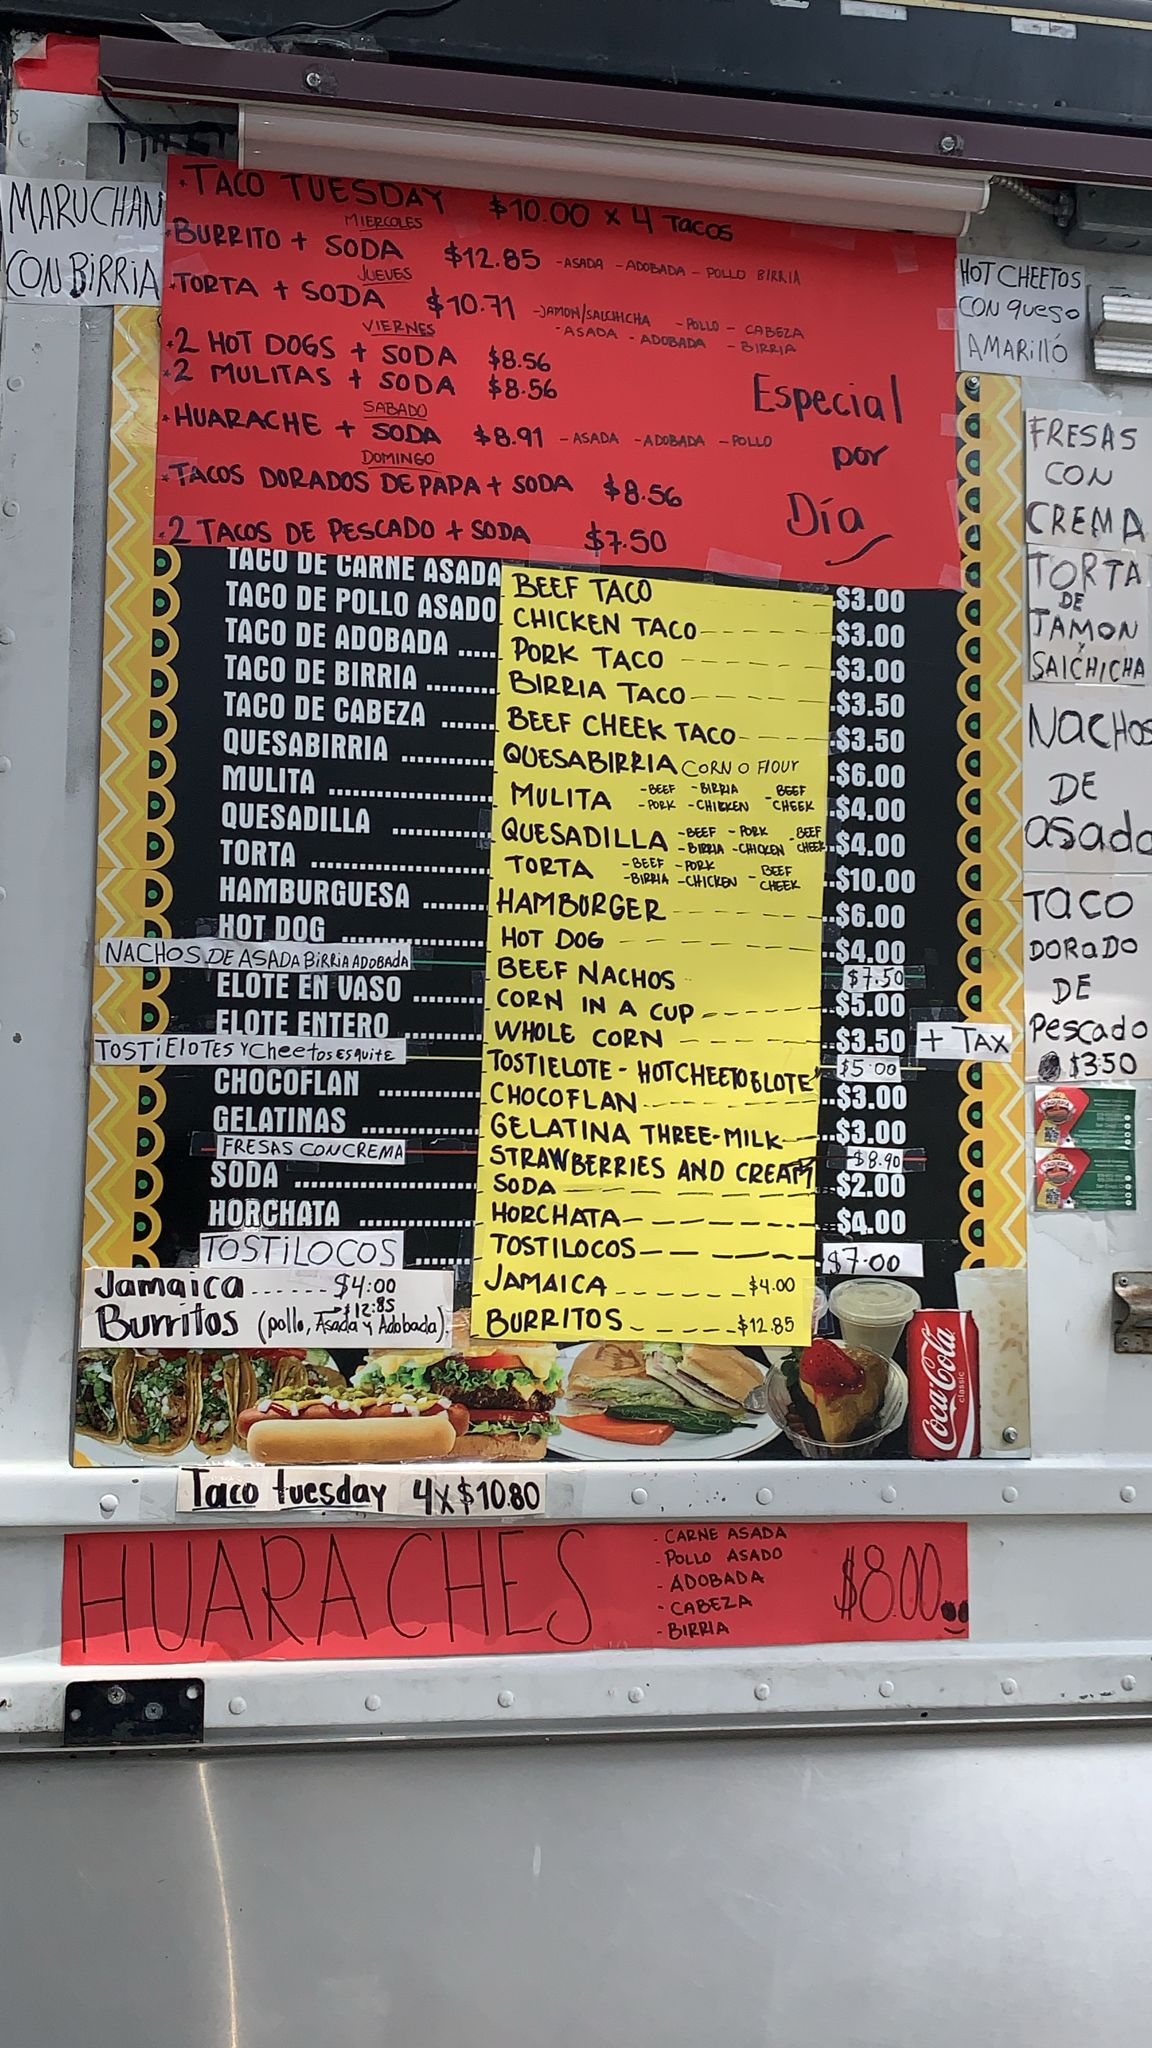 MARUCHAN
CON BIRRIA
• TACO TUESDAY $10.00 x 4 TACOS
MIERCOLES
• BURRITO + SODA $12.85 -ASADA -ADOBADA - POLLO BIRRIA
JUEVES
• TORTA + SODA $10.71 -JAMON/SALCHICHA -POLLO - CABEZA
-ASADA -ADOBADA -BIRRIA
VIERNES
• 2 HOT DOGS + SODA $8.56
• 2 MULITAS + SODA $8.56
SABADO
• HUARACHE + SODA $8.91 -ASADA -ADOBADA -POLLO
DOMINGO
• TACOS DORADOS DE PAPA + SODA $8.56
• 2 TACOS DE PESCADO + SODA $7.50
Especial
por
Día
HOT CHEETOS
CON queso
AMARILLO
FRESAS
CON
CREMA
TORTA
DE
JAMON
Y
SALCHICHA
NACHOS
DE
asada
TACO
DORADO
DE
Pescado
$3.50
TACO DE CARNE ASADA BEEF TACO $3.00
TACO DE POLLO ASADO CHICKEN TACO $3.00
TACO DE ADOBADA ..... PORK TACO $3.00
TACO DE BIRRIA ......... BIRRIA TACO $3.50
TACO DE CABEZA ....... BEEF CHEEK TACO $3.50
QUESABIRRIA ............ QUESABIRRIA CORN O FLOUR $6.00
MULITA .................... MULITA -BEEF -BIRRIA BEEF $4.00
-PORK -CHICKEN CHEEK
QUESADILLA ............. QUESADILLA -BEEF -PORK -BEEF $4.00
-BIRRIA -CHICKEN CHEEK
TORTA ...................... TORTA -BEEF -PORK -BEEF $10.00
-BIRRIA -CHICKEN CHEEK
HAMBURGUESA ........ HAMBURGER $6.00
HOT DOG .................. HOT DOG $4.00
NACHOS DE ASADA BIRRIA ADOBADA BEEF NACHOS $7.50
ELOTE EN VASO ......... CORN IN A CUP $5.00
ELOTE ENTERO .......... WHOLE CORN $3.50 + TAX
TOSTIELOTES Y Cheetos ESQUITE TOSTIELOTE - HOTCHEETO ELOTE $5.00
CHOCOFLAN ............. CHOCOFLAN $3.00
GELATINAS ............... GELATINA THREE-MILK $3.00
FRESAS CON CREMA STRAWBERRIES AND CREAM $8.90
SODA ....................... SODA $2.00
HORCHATA ............... HORCHATA $4.00
TOSTILOCOS ..... TOSTILOCOS $7.00
Jamaica ...... $4.00 JAMAICA $4.00
$12.85
Burritos (pollo, Asada y Adobada). BURRITOS $12.85
Coca-Cola
classic
Taco tuesday 4x$10.80
HUARACHES
- CARNE ASADA
- POLLO ASADO
- ADOBADA
- CABEZA
- BIRRIA
$8.00